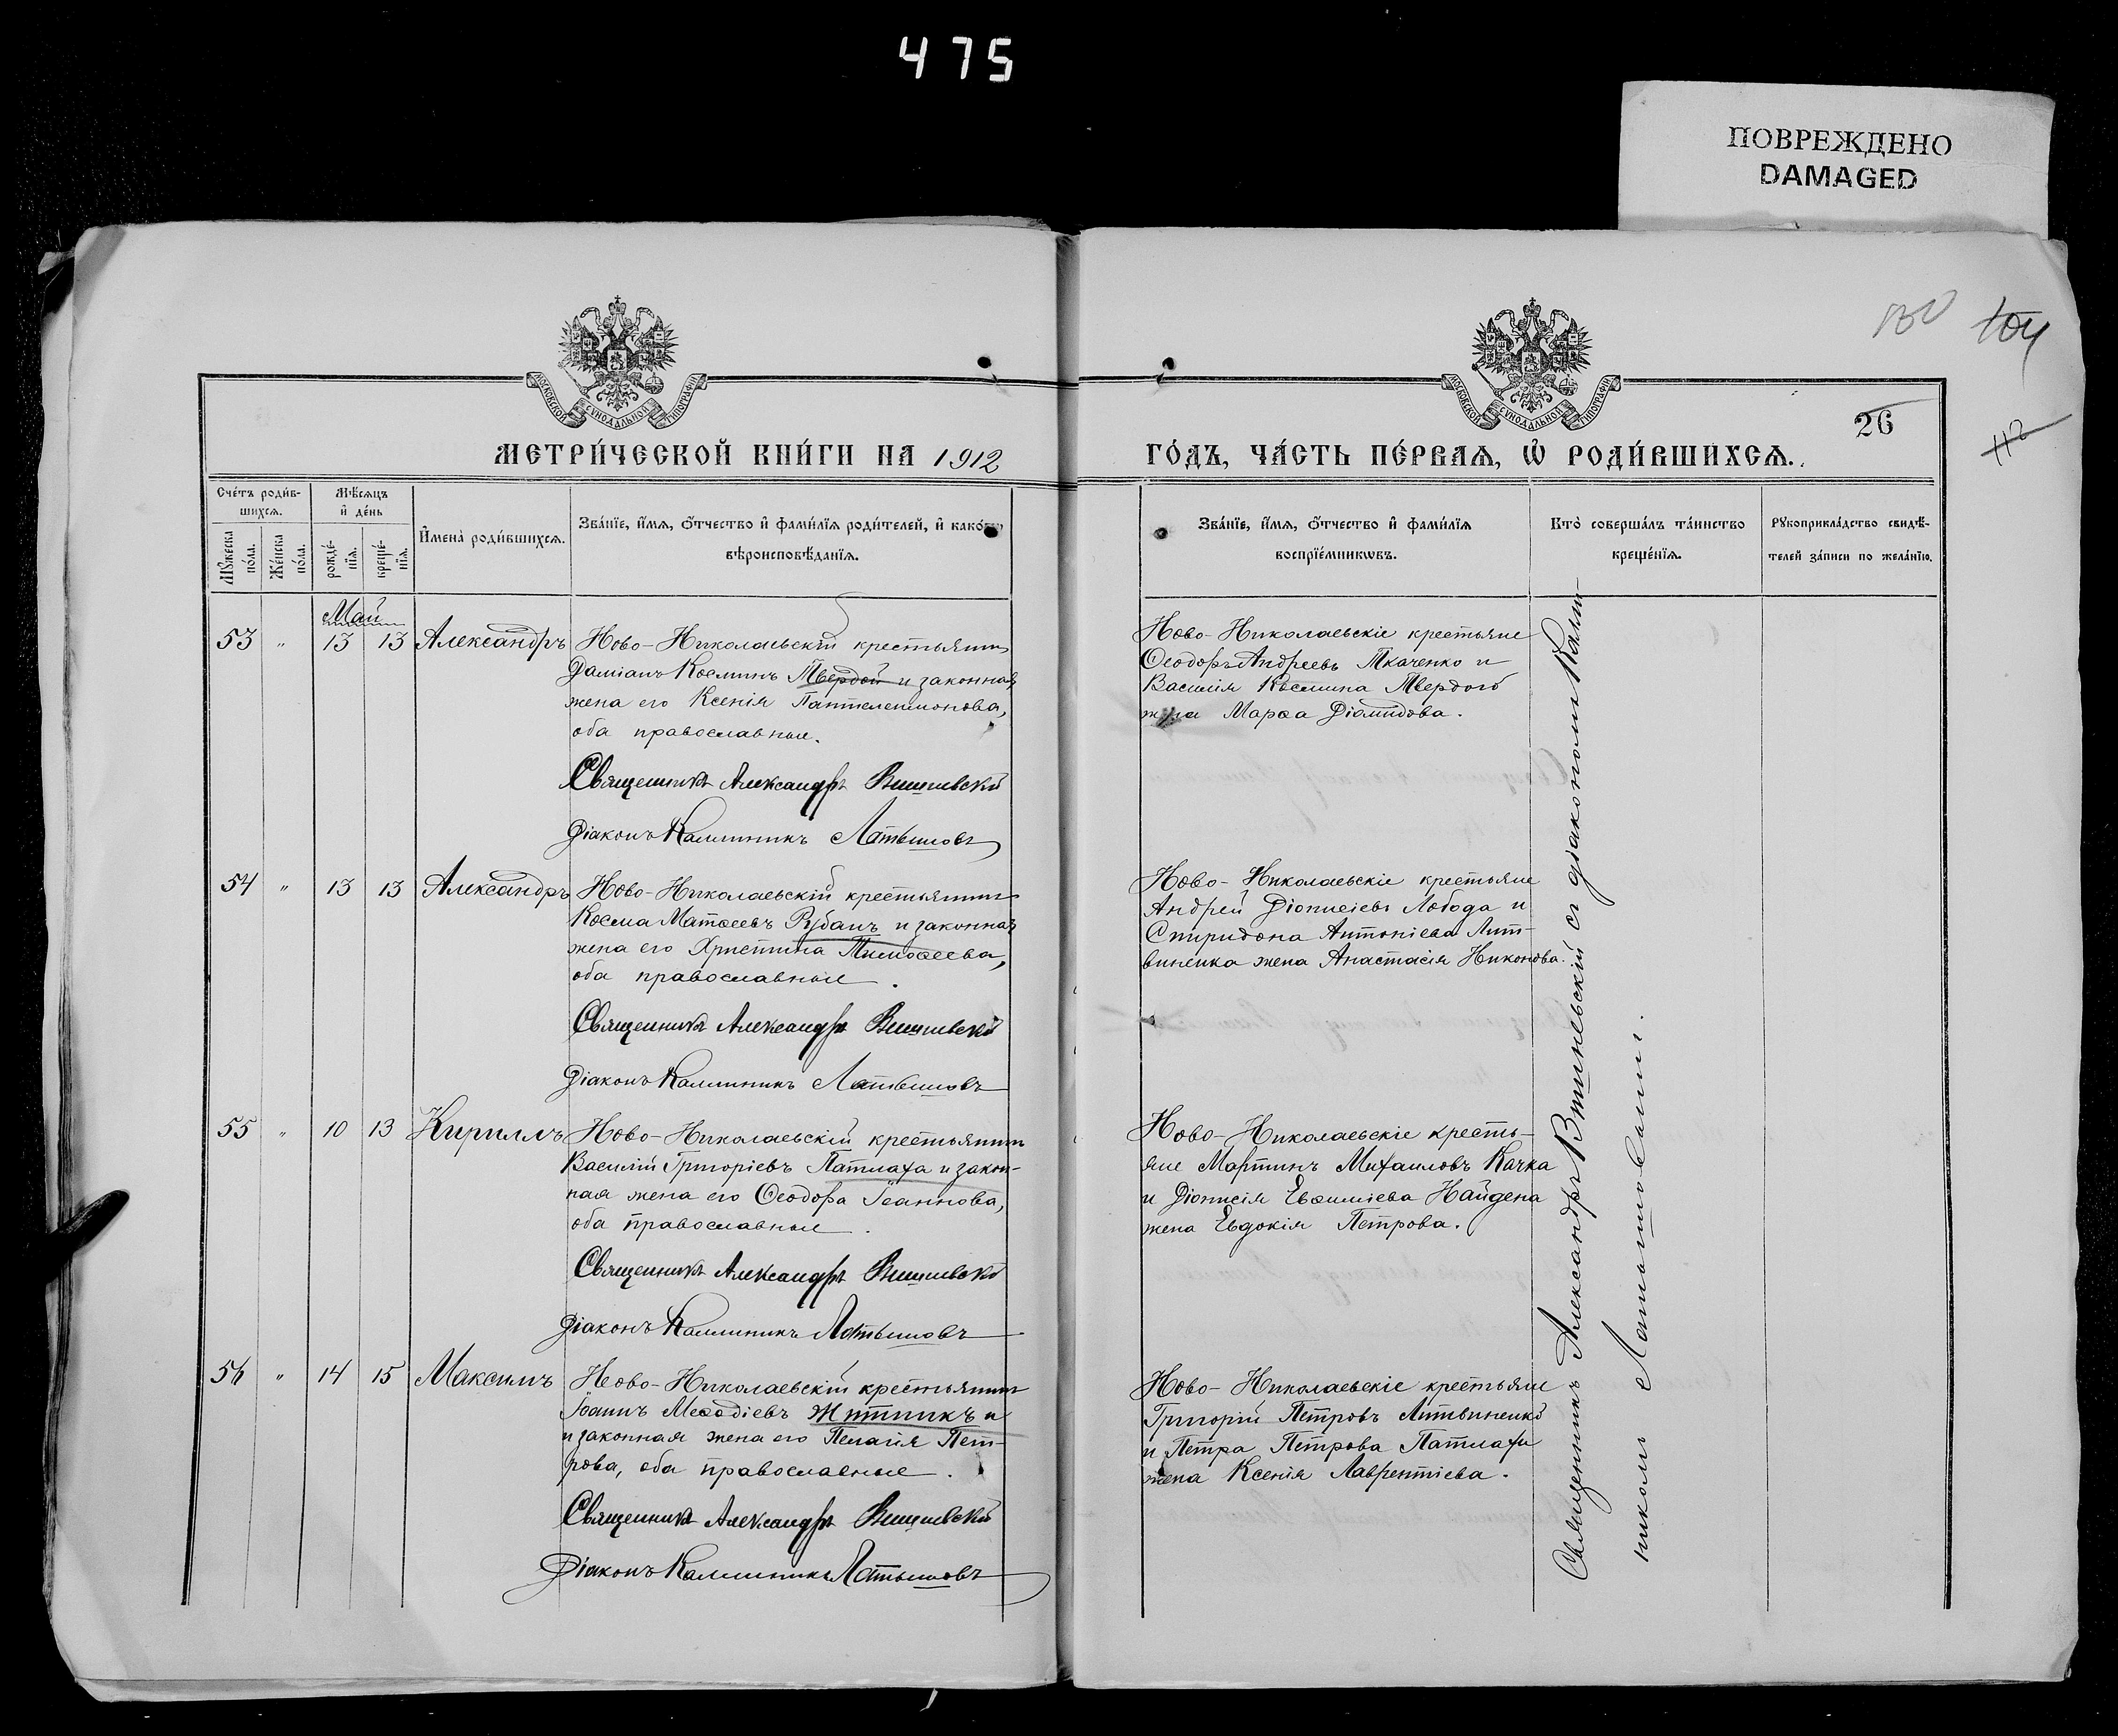 475
ПОВРЕЖДЕНО
DAMAGED
104
112
26
МОСКОВСКОЙ СУНОДАЛЬНОЙ ТИПОГРАФІИ
МОСКОВСКОЙ СУНОДАЛЬНОЙ ТИПОГРАФІИ
МЕТРИ́ЧЕСКОЙ КНИ́ГИ НА 1912
ГО́ДЪ, ЧА́СТЬ ПЕ́РВАѦ, Ѡ҆ РОДИ́ВШИХСѦ.
Сче́тъ роди́в-
шихсѧ.
Мꙋ́жеска по́ла.
Же́нска по́ла.
Мѣ́сѧцъ
и҆ де́нь
рожде́-
нїѧ.
креще́-
нїѧ.
И҆мена̀ роди́вшихсѧ.
Зва́нїе, и҆́мѧ, ѻ҆́тчество и҆ фами́лїѧ роди́телей, и҆ како́гѡ
вѣроисповѣ́данїѧ.
Зва́нїе, и҆́мѧ, ѻ҆́тчество и҆ фами́лїѧ
воспрїе́мникѡвъ.
Кто̀ соверша́лъ та́инство
креще́нїѧ.
Рꙋкоприкла́дство свидѣ́-
телей за́писи по жела́нїю.
Май
53 " 13 13 Александръ
Ново-Николаевскій крестьянинъ
Даміанъ Косминъ Твердой и законная
жена его Ксенія Пантелеимонова,
оба православные.
Священникъ Александръ Вишневскій
Діаконъ Каллиникъ Латышовъ
Ново-Николаевскіе крестьяне
Ѳеодоръ Андреевъ Ткаченко и
Василія Космина Твердого
жена Марѳа Діомидова.
54 " 13 13 Александръ
Ново-Николаевскій крестьянинъ
Косма Матѳеевъ Рубанъ и законная
жена его Христина Тимоѳеева,
оба православные.
Священникъ Александръ Вишневскій
Діаконъ Каллиникъ Латышовъ
Ново-Николаевскіе крестьяне
Андрей Діонисіевъ Лобода и
Спиридона Антоніева Лит-
виненка жена Анастасія Никонова.
55 " 10 13 Кириллъ
Ново-Николаевскій крестьянинъ
Василій Григоріевъ Патлаха и закон-
ная жена его Ѳеодора Іоаннова,
оба православные.
Священникъ Александръ Вишневскій
Діаконъ Каллиникъ Латышовъ
Ново-Николаевскіе кресть-
яне Мартинъ Михаиловъ Качка
и Діонисія Евѳиміева Найдена
жена Евдокія Петрова.
56 " 14 15 Максимъ
Ново-Николаевскій крестьянинъ
Іоаннъ Меѳодіевъ Житникъ и
и законная жена его Пелагія Пет-
рова, оба православные.
Священникъ Александръ Вишневскій
Діаконъ Каллиникъ Латышовъ
Ново-Николаевскіе крестьяне
Григорій Петровъ Литвиненко
и Петра Петрова Патлахи
жена Ксенія Лаврентіева.
Священникъ Александръ Вишневскій съ діакономъ Калли-
никомъ Латышовымъ.